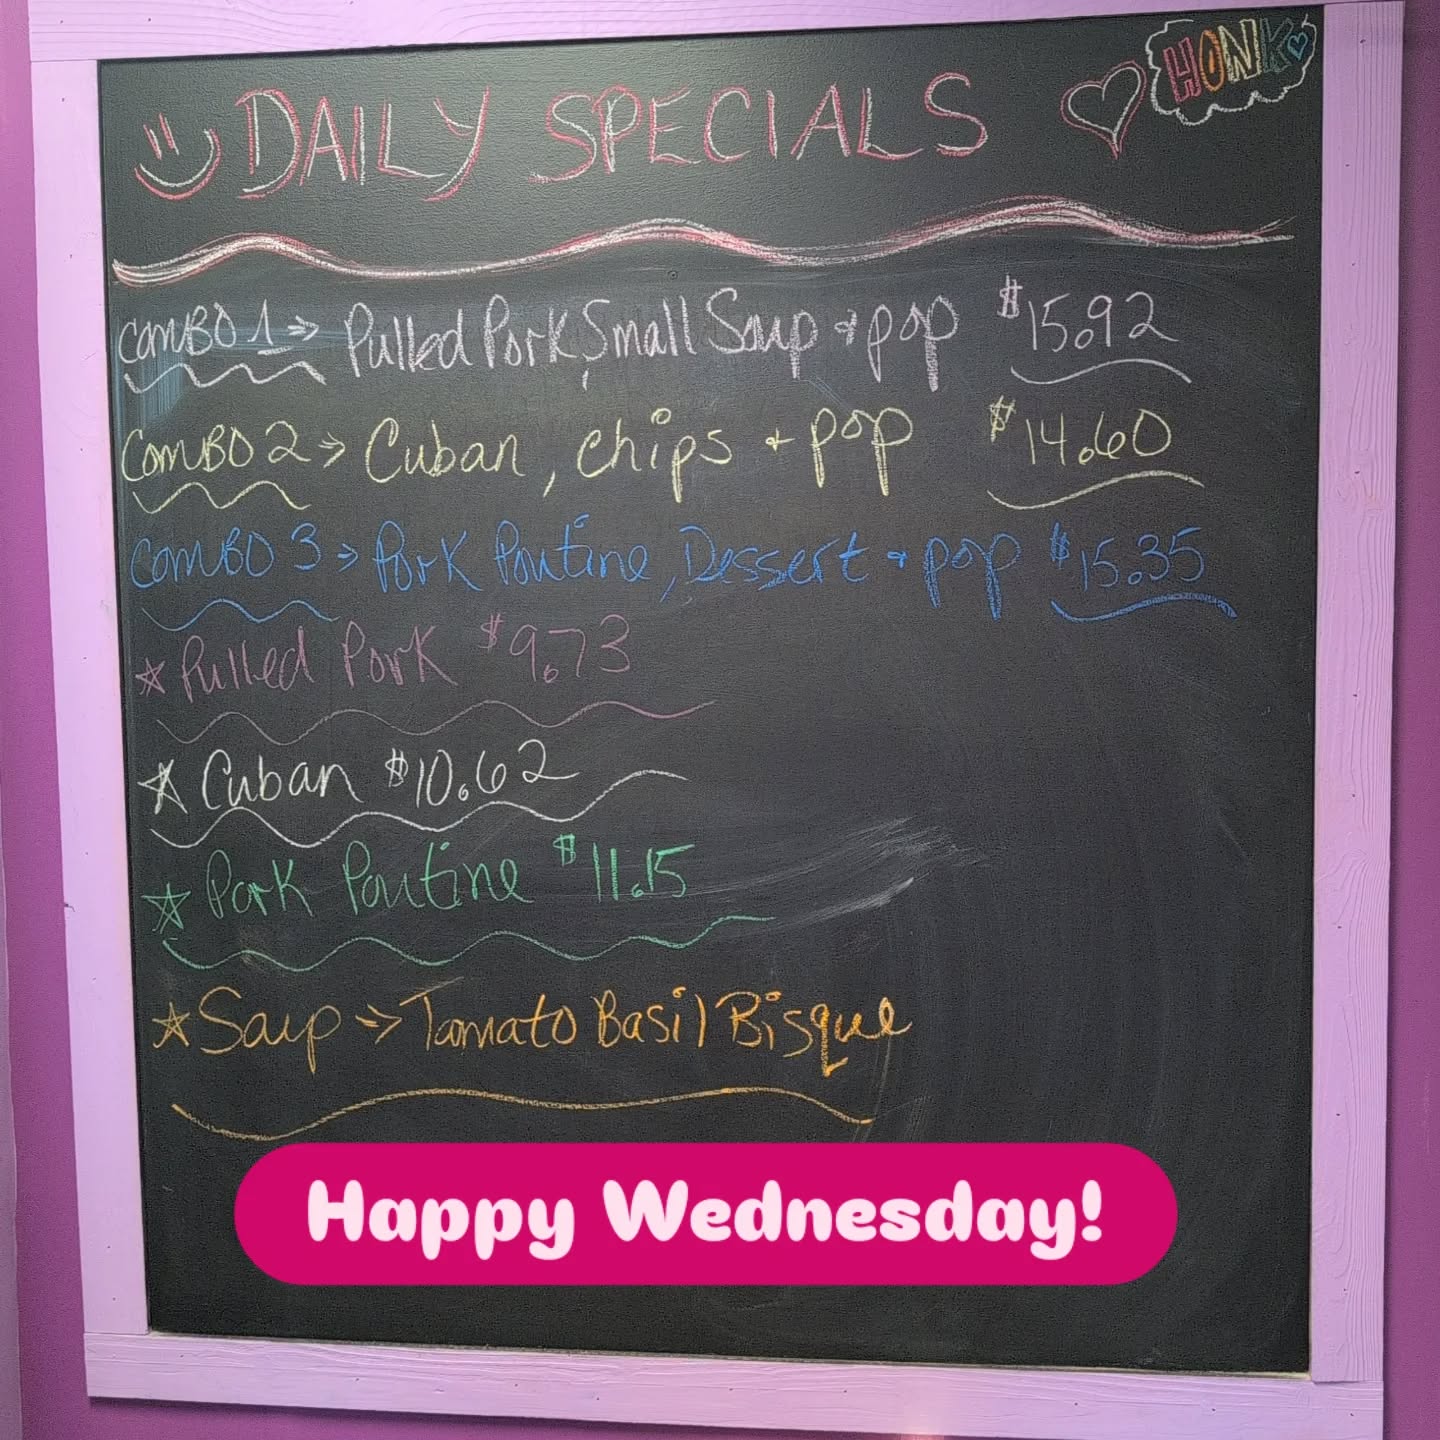 HONK
DAILY SPECIALS
COMBO 1 => Pulled Pork, Small Soup + pop $15.92
COMBO 2 => Cuban, chips + pop $14.60
COMBO 3 => Pork Poutine, Dessert + pop $15.35
☆ Pulled Pork $9.73
☆ Cuban $10.62
☆ Pork Poutine $11.15
☆ Soup => Tomato Basil Bisque
Happy Wednesday!